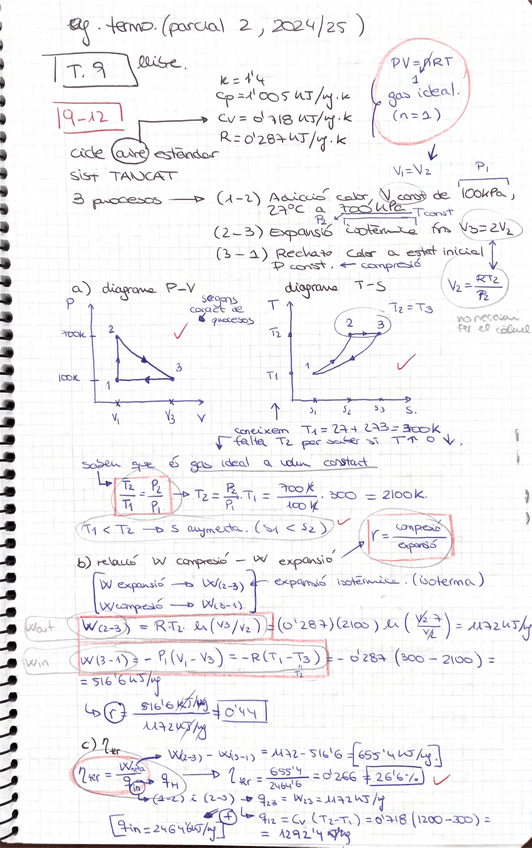 eg. termo. (parcial 2, 2024/25)
T. 9 llibre.
9-12
k = 1'4
Cp = 1'005 kJ/kg.k
Cv = 0'718 kJ/kg.k
R = 0'287 kJ/kg.k
PV = nRT
1
gas ideal.
(n = 1)
cicle aire estàndar
sist TANCAT
V1 = V2
P1
3 processos → (1-2) Adició calor, V const de 100kPa,
27°C a 700kPa
P2
T const
(2-3) Expansió isotèrmica fins V3 = 2V2
(3-1) Rechazo calor a estat inicial
P const. ← compresió
V2 = RT2/P2
no necessari
fer el càlcul
a) diagrama P-V
segons
caract de
processos
diagrama T-S
T2 = T3
P
700k
100k
2
1
3
V1
V3
V
T
T2
T1
2
3
1
S1
S2
S3
S.
coneixem T1 = 27 + 273 = 300k
falta T2 per saber si T ↑ o ↓.
sabem que és gas ideal a volum constant
T2/T1 = P2/P1 → T2 = P2/P1 . T1 = 700k/100k . 300 = 2100k.
T1 < T2 → S augmenta. (S1 < S2)
r = compresió/expansió
b) relació W compresió - W expansió
W expansió → W(2-3) ← expansió isotèrmica. (isoterma)
W compresió → W(3-1)
Wout W(2-3) = R.T2 ln(V3/V2) = (0'287)(2100) ln(V2·7/V2) = 1172 kJ/kg
Win W(3-1) = -P1(V1-V3) = -R(T1-T3) = -0'287 (300-2100) =
T2
= 516'6 kJ/kg
↳ r = 516'6 kJ/kg / 1172 kJ/kg = 0'44
c) ηter
W(2-3) - W(3-1) = 1172 - 516'6 = 655'4 kJ/kg
ηter = Wneta/qin → qH → ηter = 655'4/2464'6 = 0'266 = 26'6%
↳ (1-2) i (2-3) → q23 = W23 = 1172 kJ/kg
+
qin = 2464'6 kJ/kg
q12 = Cv (T2-T1) = 0'718 (1200-300) =
= 1292'4 kJ/kg